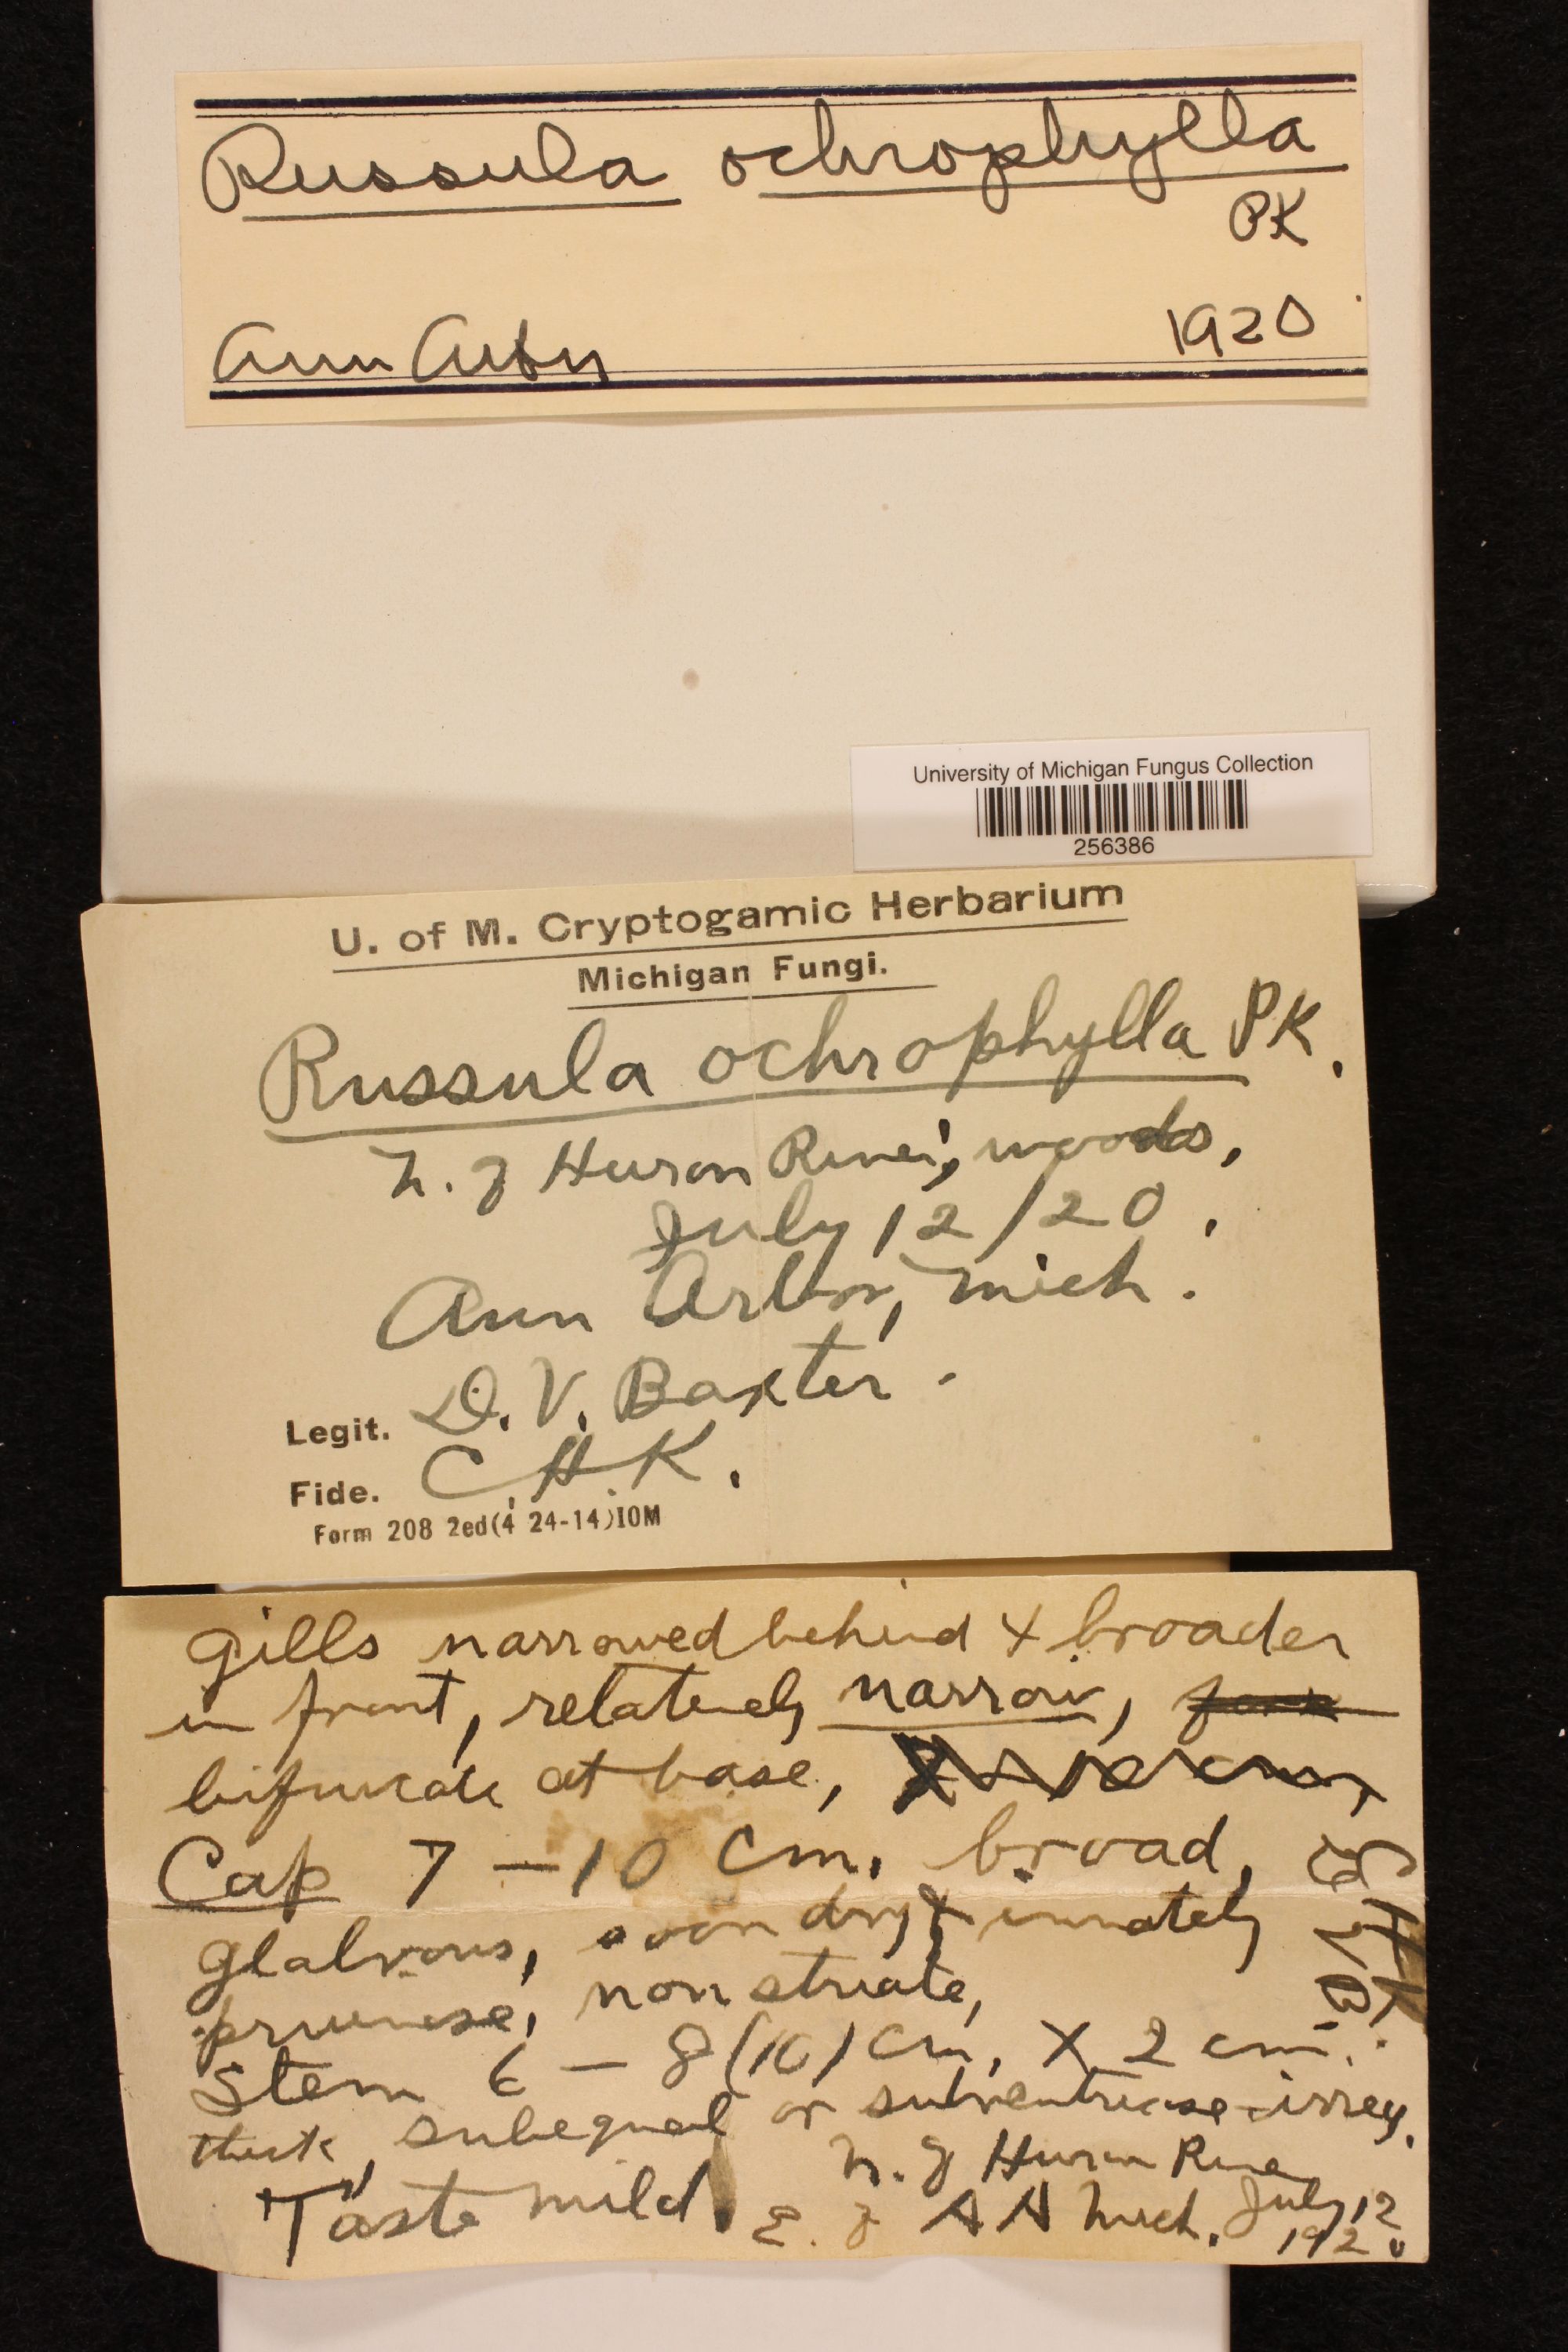 Russula ochrophylla
PK
Ann Arbor
1920
University of Michigan Fungus Collection
256386
U. of M. Cryptogamic Herbarium
Michigan Fungi.
Russula ochrophylla PK.
N. of Huron River, woods,
July 12/20.
Ann Arbor, Mich.
Legit. D. V. Baxter.
Fide. C.H.K.
Form 208 2ed(4 24-14)10M
gills narrowed behind & broader
in front, relatively narrow, fork
bifurcate at base,
Cap 7-10 cm. broad,
glabrous, soon dry & innately
pruinose, non striate,
Stem 6-8(10) cm. X 2 cm.
thick, subequal or subventricose-irreg.
Taste mild.
N. of Huron River
E. of AA Mich. July 12
1920